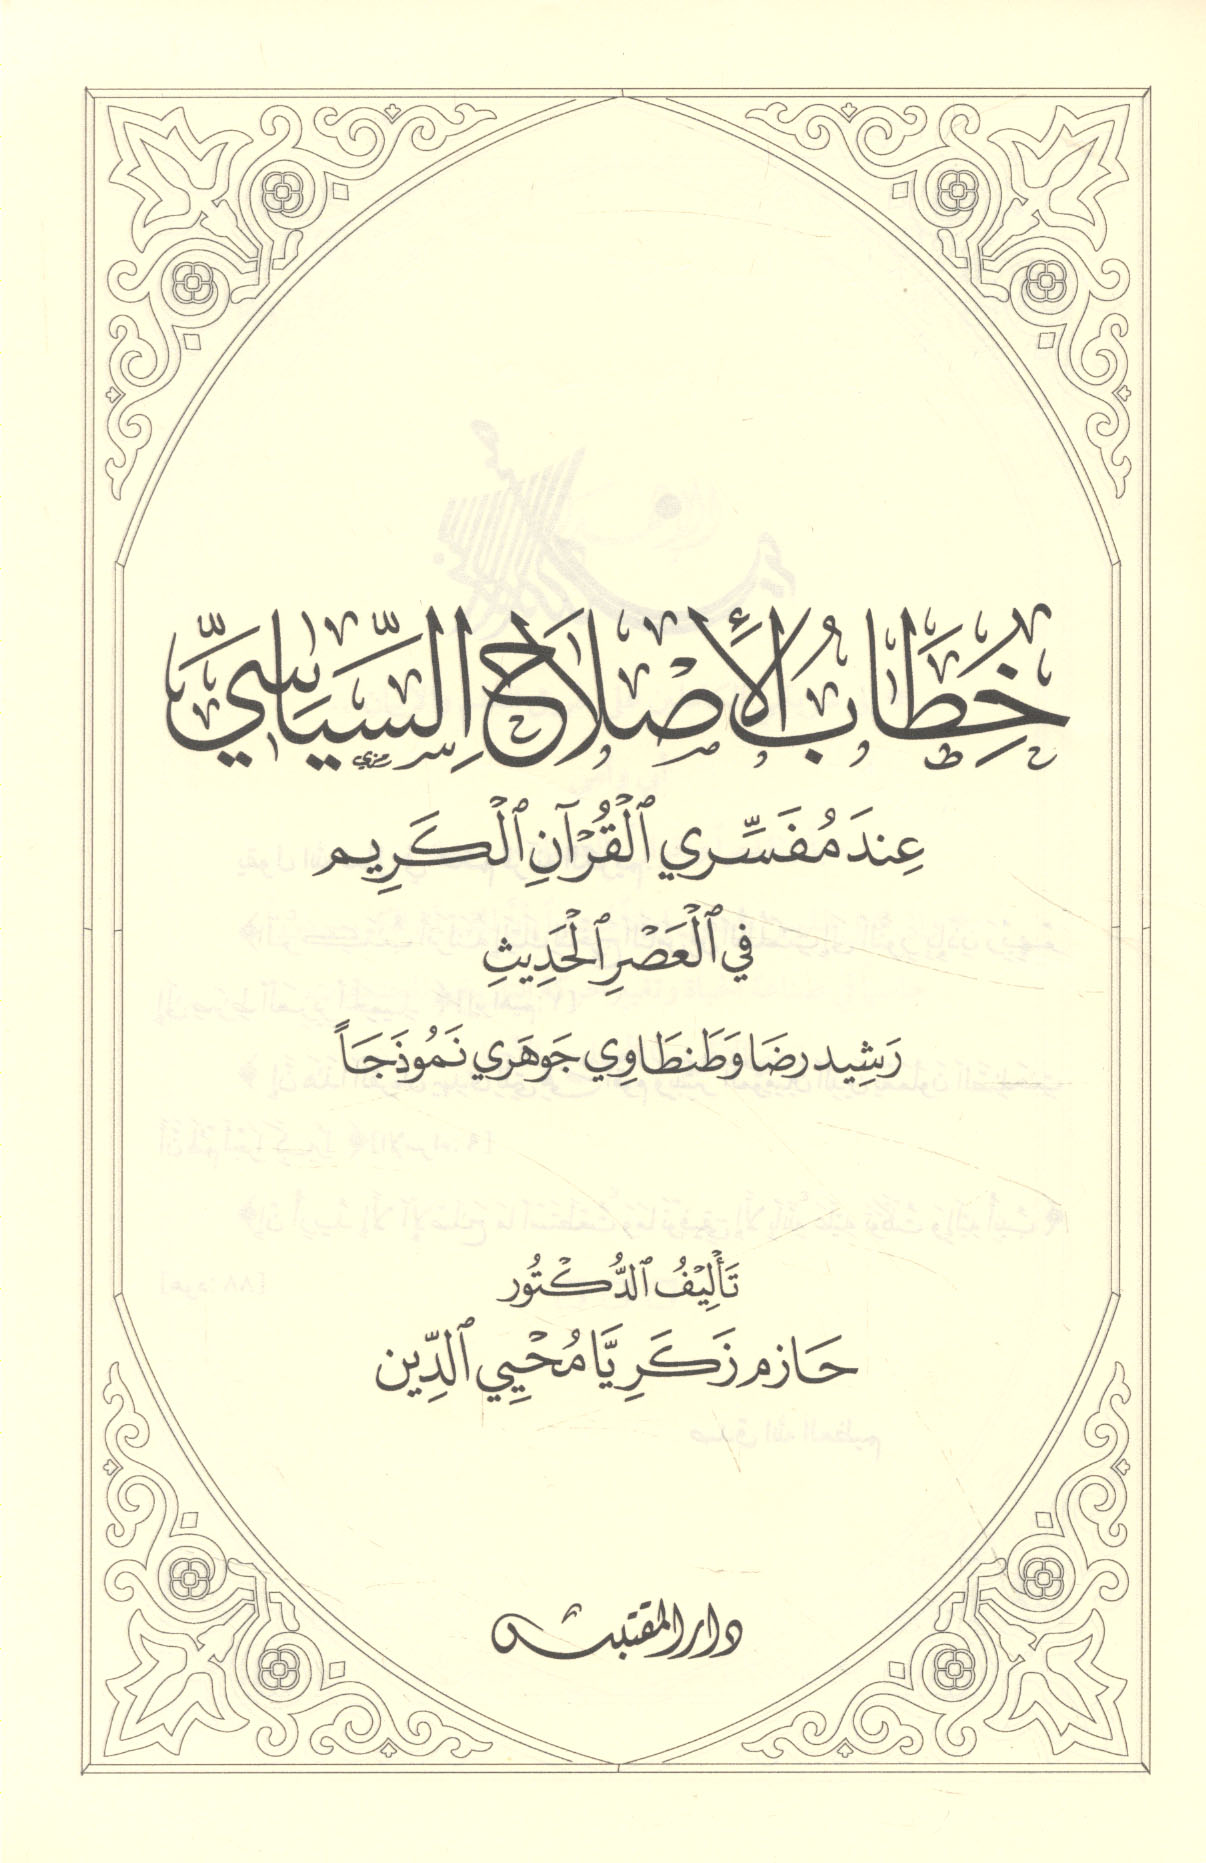 خِطَابُ الْأِصْلَاحِ السِّيَاسِيِّ
عِندَ مُفَسِّرِي الْقُرْآنِ الْكَرِيمِ
فِي الْعَصْرِ الْحَدِيثِ
رَشِيد رِضَا وَطَنطَاوِي جَوهَرِي نَمُوذَجَاً
تَأْلِيْفُ الدُّكْتُور
حَازِم زَكَرِيَّا مُحْيِي الدِّين
دار المقتبس